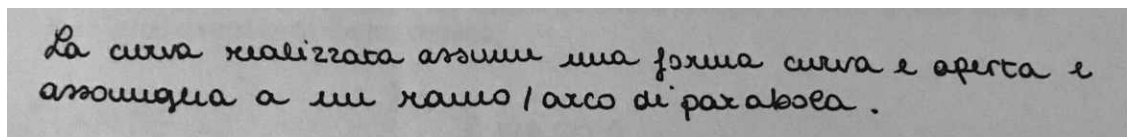 La curva realizzata assume una forma curva e aperta e
assomiglia a un ramo / arco di parabola.